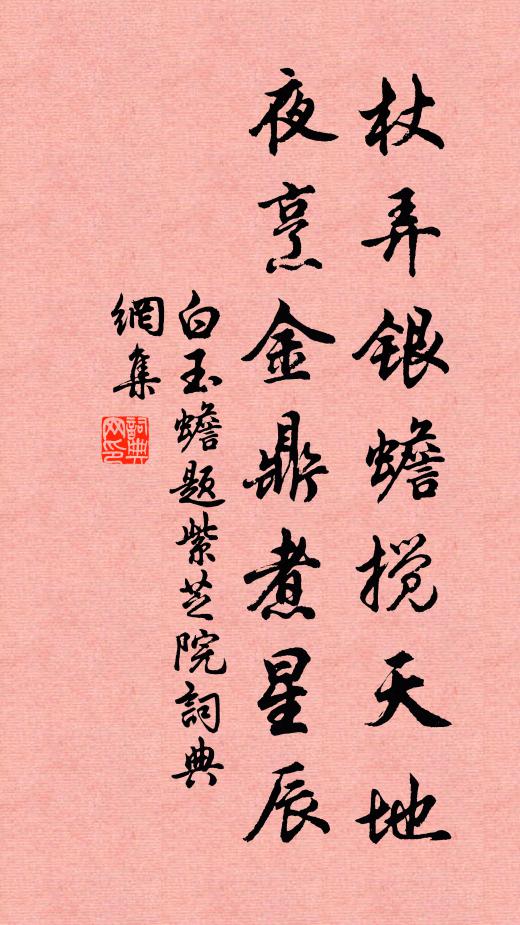 杖弄银蟾搅天地
夜烹金鼎煮星辰
白玉蟾题紫芝院詞典
網集
詞典
网印